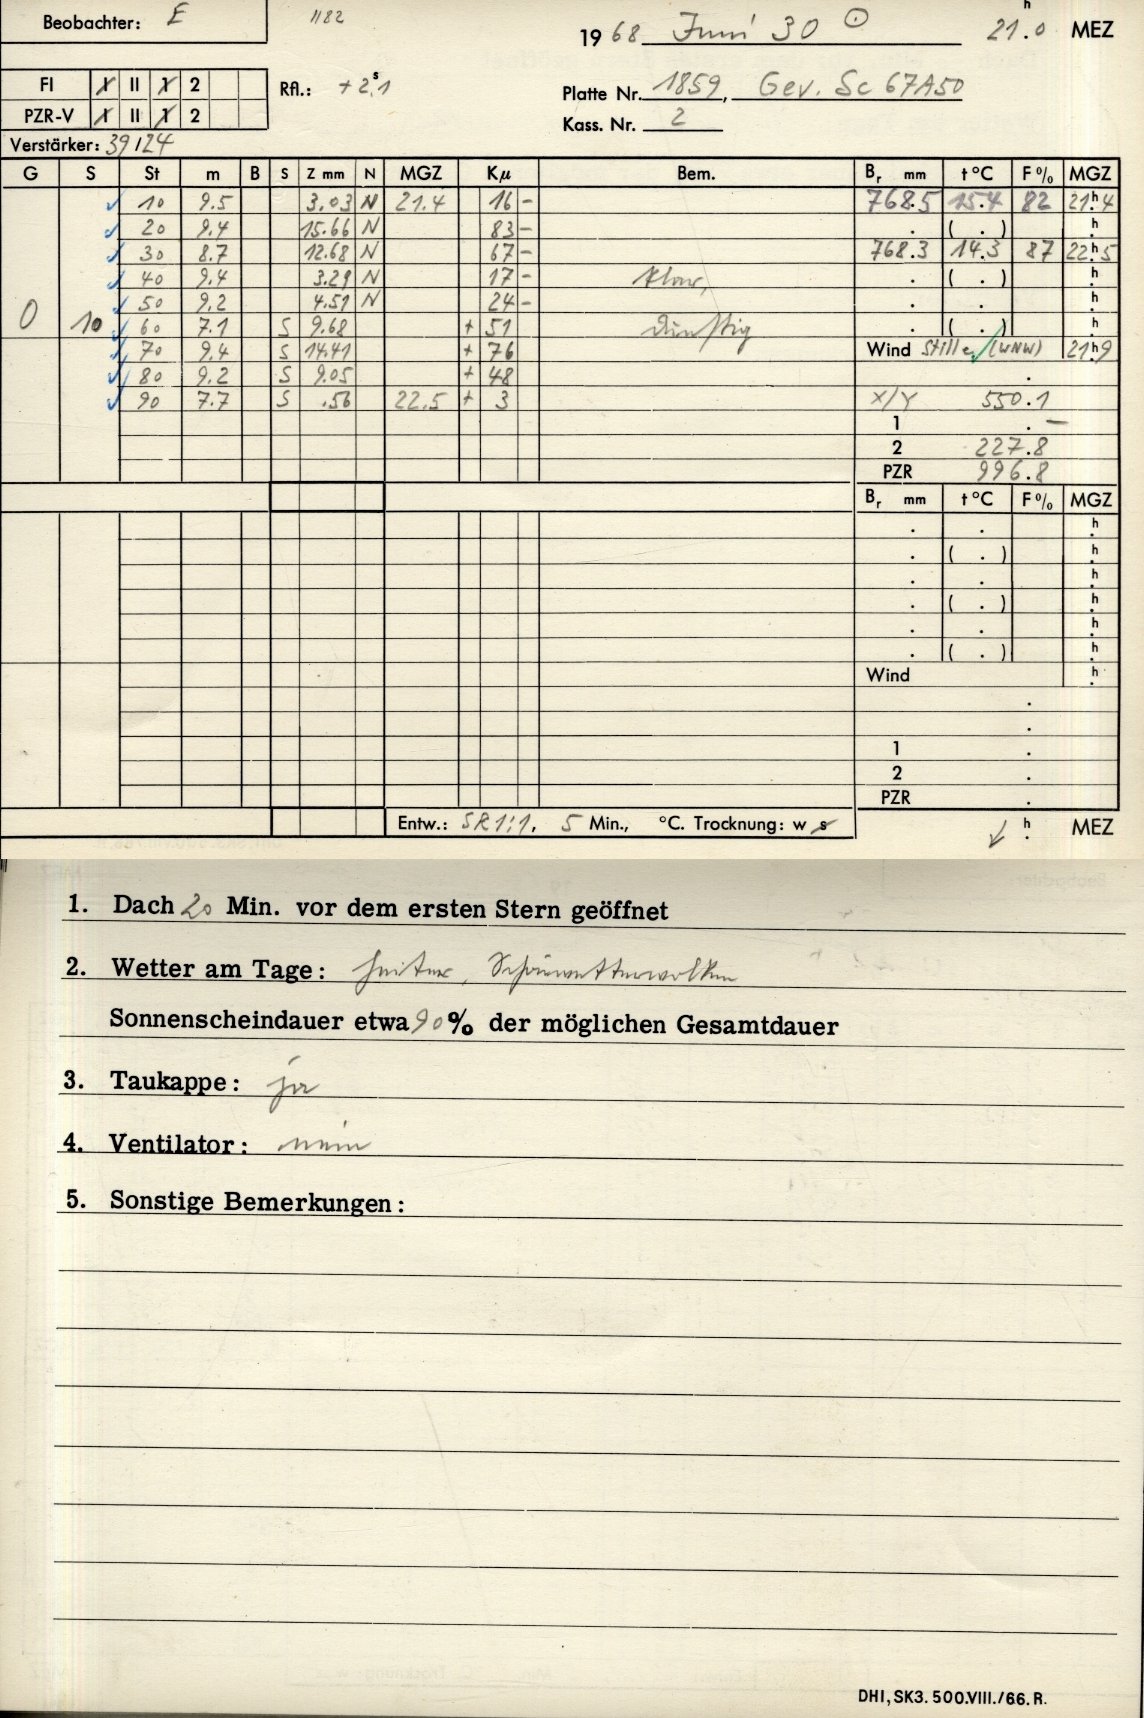 Beobachter: E 1182
1968 Juni 30 ⊙ 21.h0 MEZ
FI I II 1 2 Rfl.: +2.s1
Platte Nr. 1859, Gev. Sc 67A50
PZR-V I II 1 2
Kass. Nr. 2
Verstärker: 39/24
G S St m B S Z mm N MGZ Kμ Bem. Br mm t °C F % MGZ
✓ 10 9.5 3.03 N 21.4 16 - 768.5 15.4 82 21h4
✓ 20 9.4 15.66 N 83 - . ( . ) h
✓ 30 8.7 12.68 N 67 - 768.3 14.3 87 22h5
✓ 40 9.4 3.29 N 17 - klar, . ( . ) h
✓ 50 9.2 4.51 N 24 - . . h
0 10 ✓ 60 7.1 S 9.68 + 51 dunstig . ( . ) h
✓ 70 9.4 S 14.41 + 76 Wind Stille ✓ (WNW) 21h9
✓ 80 9.2 S 9.05 + 48 .
✓ 90 7.7 S .56 22.5 + 3 X/Y 550.1
1 . –
2 227.8
PZR 996.8
Br mm t °C F % MGZ
. . h
. ( . ) h
. . h
. ( . ) h
. . h
. ( . ) h
Wind h
.
.
1 .
2 .
PZR .
Entw.: SR 1:1, 5 Min., °C. Trocknung: w s ↙ h. MEZ
1. Dach 20 Min. vor dem ersten Stern geöffnet
2. Wetter am Tage: heiter, Schönwetterwolken
Sonnenscheindauer etwa 90% der möglichen Gesamtdauer
3. Taukappe: ja
4. Ventilator: nein
5. Sonstige Bemerkungen:
DHI, SK3. 500.VIII./66. R.